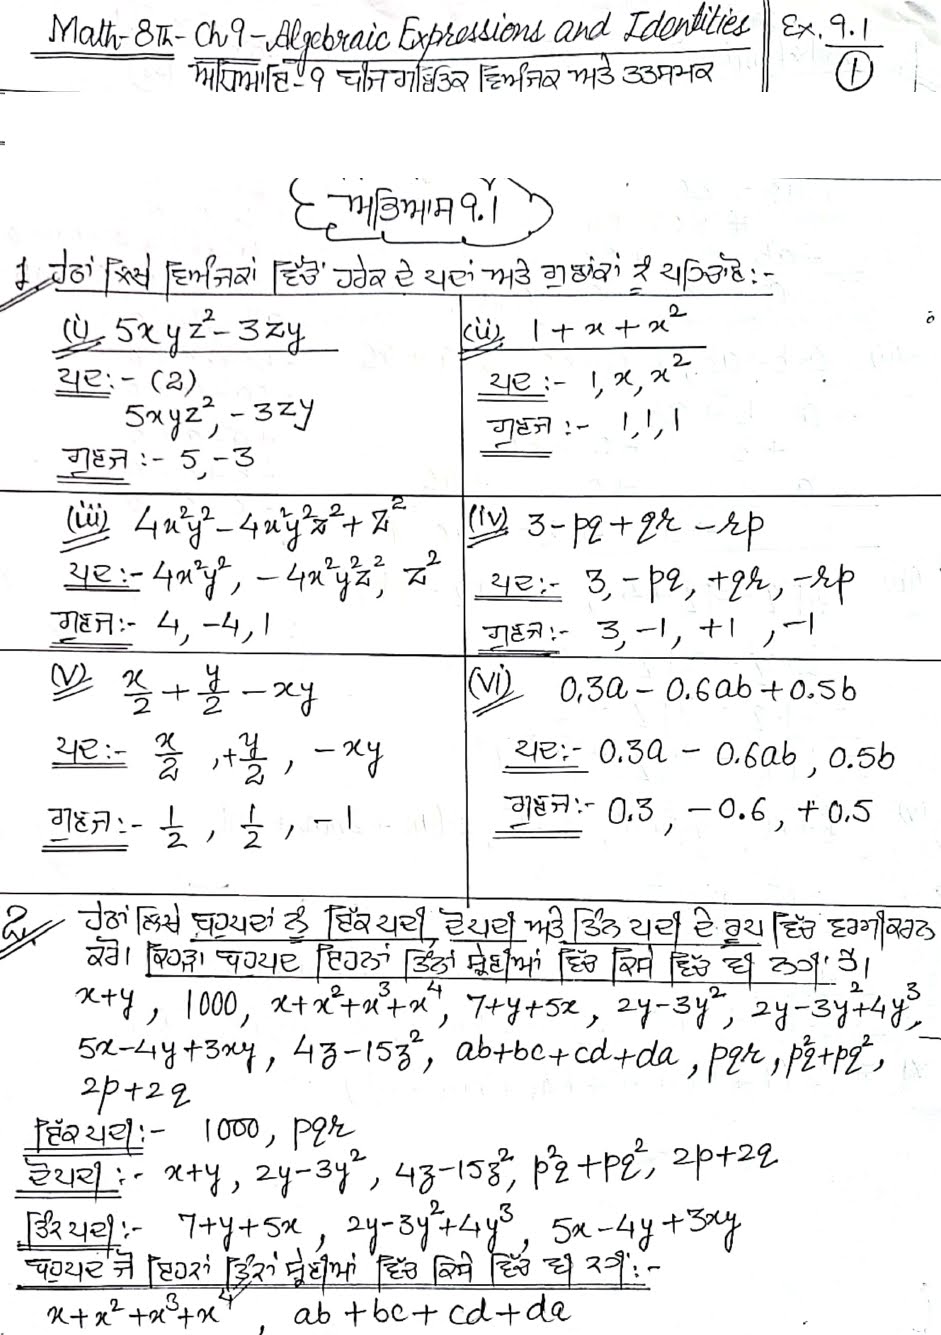 Math-8th- Ch9-Algebraic Expressions and Identities Ex. 9.1
ਅਧਿਆਇ-9 ਬੀਜ ਗਣਿਤਿਕ ਵਿਅੰਜਕ ਅਤੇ ਤਤਸਮਕ 1
ਅਭਿਆਸ 9.1
1. ਹੇਠਾਂ ਲਿਖੇ ਵਿਅੰਜਕਾਂ ਵਿੱਚੋਂ ਹਰੇਕ ਦੇ ਪਦਾਂ ਅਤੇ ਗੁਣਾਂਕਾਂ ਨੂੰ ਪਹਿਚਾਣੋ:-
(i) 5xyz² - 3zy
ਪਦ:- (2)
5xyz², -3zy
ਗੁਣਜ :- 5, -3
(ii) 1 + x + x²
ਪਦ :- 1, x, x²
ਗੁਣਜ :- 1, 1, 1
(iii) 4x²y² - 4x²y²z² + z²
ਪਦ:- 4x²y², -4x²y²z², z²
ਗੁਣਜ:- 4, -4, 1
(iv) 3 - pq + qr - rp
ਪਦ:- 3, -pq, +qr, -rp
ਗੁਣਜ:- 3, -1, +1, -1
(v) x/2 + y/2 - xy
ਪਦ:- x/2, +y/2, -xy
ਗੁਣਜ:- 1/2, 1/2, -1
(vi) 0.3a - 0.6ab + 0.5b
ਪਦ:- 0.3a - 0.6ab, 0.5b
ਗੁਣਜ:- 0.3, -0.6, +0.5
2. ਹੇਠਾਂ ਲਿਖੇ ਬਹੁਪਦਾਂ ਨੂੰ ਇੱਕ ਪਦੀ, ਦੋ ਪਦੀ ਅਤੇ ਤਿੰਨ ਪਦੀ ਦੇ ਰੂਪ ਵਿੱਚ ਵਰਗੀਕਰਨ
ਕਰੋ। ਕਿਹੜਾ ਬਹੁਪਦ ਇਹਨਾਂ ਤਿੰਨਾਂ ਸ਼੍ਰੇਣੀਆਂ ਵਿੱਚ ਕਿਸੇ ਵਿੱਚ ਵੀ ਨਹੀਂ ਹੈ।
x+y, 1000, x+x²+x³+x⁴, 7+y+5x, 2y-3y², 2y-3y²+4y³,
5x-4y+3xy, 4z-15z², ab+bc+cd+da, pqr, p²q+pq²,
2p+2q
ਇੱਕ ਪਦੀ:- 1000, pqr
ਦੋ ਪਦੀ:- x+y, 2y-3y², 4z-15z², p²q+pq², 2p+2q
ਤਿੰਨ ਪਦੀ:- 7+y+5x, 2y-3y²+4y³, 5x-4y+3xy
ਬਹੁਪਦ ਜੋ ਇਹਨਾਂ ਤਿੰਨਾਂ ਸ਼੍ਰੇਣੀਆਂ ਵਿੱਚ ਕਿਸੇ ਵਿੱਚ ਵੀ ਨਹੀਂ:-
x+x²+x³+x⁴, ab+bc+cd+da